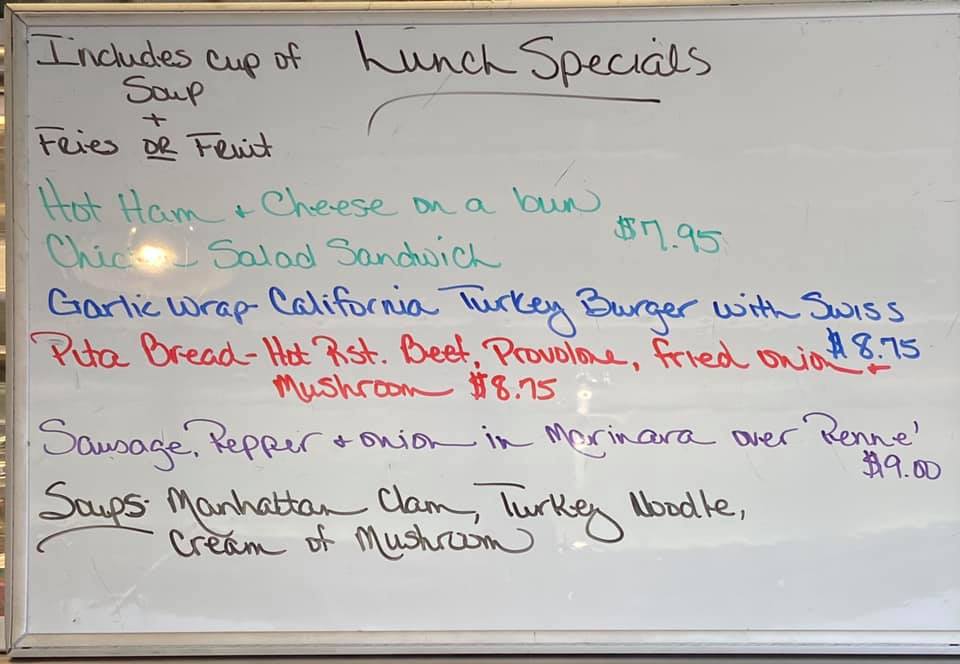 Lunch Specials
Includes cup of
Soup
+
Fries OR Fruit
Hot Ham + Cheese on a bun
$7.95
Salad Sandwich
Garlic Wrap - California Turkey Burger with Swiss
$8.75
Pita Bread - Hot Rst. Beef, Provolone, fried onion +
Mushroom $8.75
Sausage, Pepper + onion in Marinara over Penne'
$9.00
Soups: Manhattan Clam, Turkey Noodle,
Cream of Mushroom